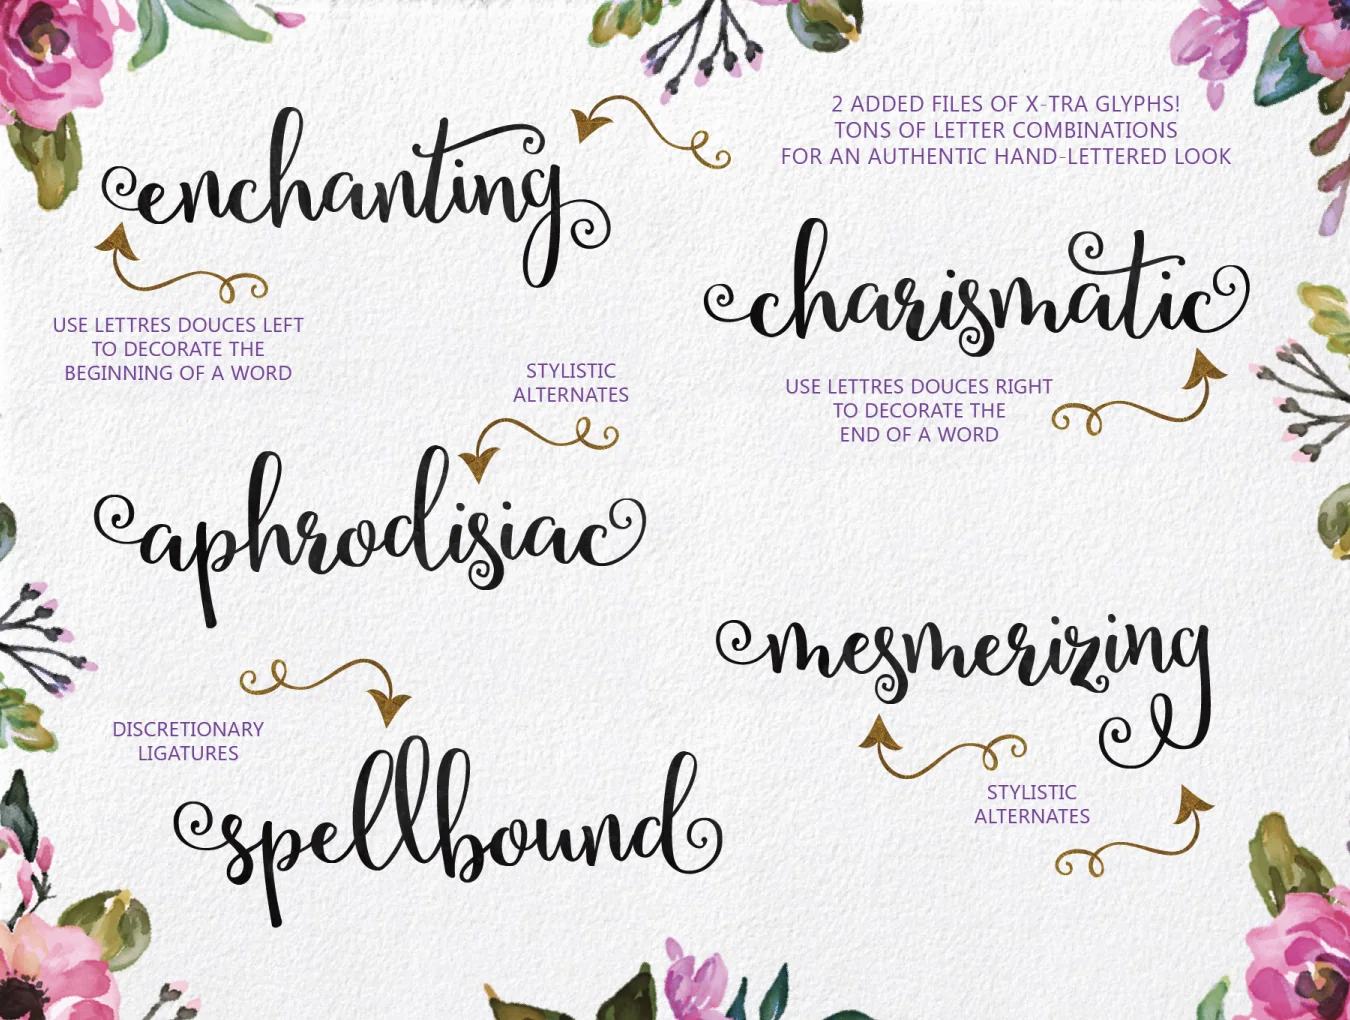 2 ADDED FILES OF X-TRA GLYPHS!
TONS OF LETTER COMBINATIONS
FOR AN AUTHENTIC HAND-LETTERED LOOK
enchanting
USE LETTRES DOUCES LEFT
TO DECORATE THE
BEGINNING OF A WORD
charismatic
USE LETTRES DOUCES RIGHT
TO DECORATE THE
END OF A WORD
STYLISTIC
ALTERNATES
aphrodisiac
mesmerizing
STYLISTIC
ALTERNATES
DISCRETIONARY
LIGATURES
spellbound